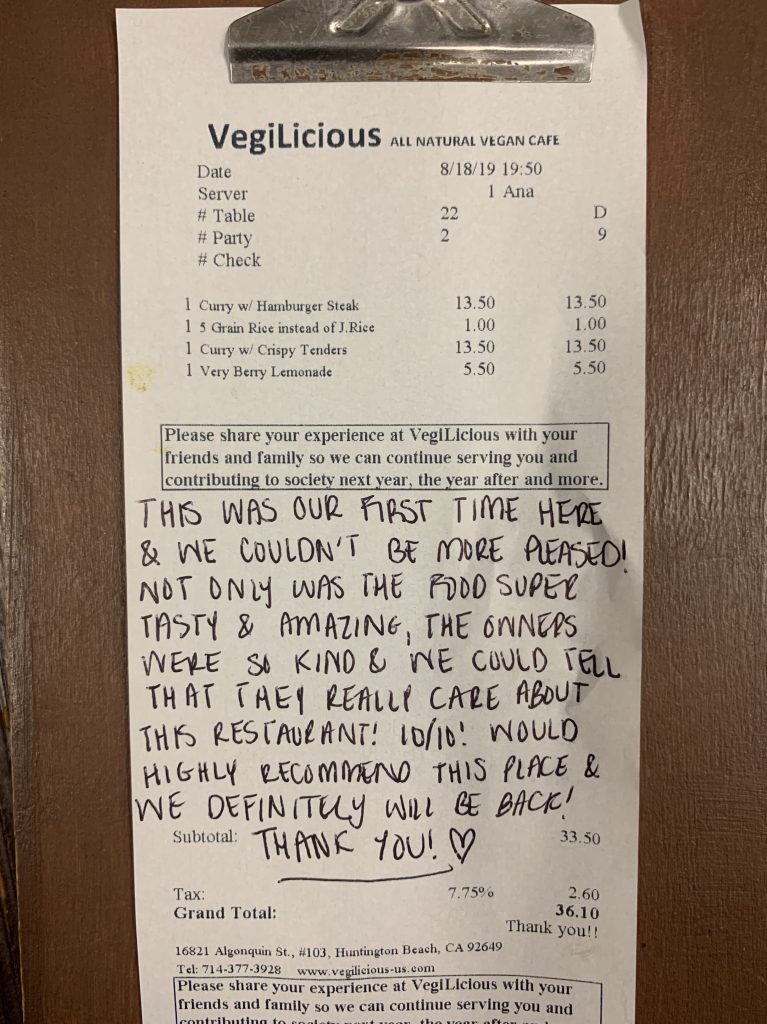 VegiLicious ALL NATURAL VEGAN CAFE
Date 8/18/19 19:50
Server 1 Ana
# Table 22 D
# Party 2 9
# Check
1 Curry w/ Hamburger Steak 13.50 13.50
1 5 Grain Rice instead of J.Rice 1.00 1.00
1 Curry w/ Crispy Tenders 13.50 13.50
1 Very Berry Lemonade 5.50 5.50
Please share your experience at VegiLicious with your
friends and family so we can continue serving you and
contributing to society next year, the year after and more.
THIS WAS OUR FIRST TIME HERE
& WE COULDN'T BE MORE PLEASED!
NOT ONLY WAS THE FOOD SUPER
TASTY & AMAZING, THE OWNERS
WERE SO KIND & WE COULD TELL
THAT THEY REALLY CARE ABOUT
THIS RESTAURANT! 10/10! WOULD
HIGHLY RECOMMEND THIS PLACE &
WE DEFINITELY WILL BE BACK!
THANK YOU! ♡
Subtotal: 33.50
Tax: 7.75% 2.60
Grand Total: 36.10
Thank you!!
16821 Algonquin St., #103, Huntington Beach, CA 92649
Tel: 714-377-3928 www.vegilicious-us.com
Please share your experience at VegiLicious with your
friends and family so we can continue serving you and
contributing to society next year, the year after and